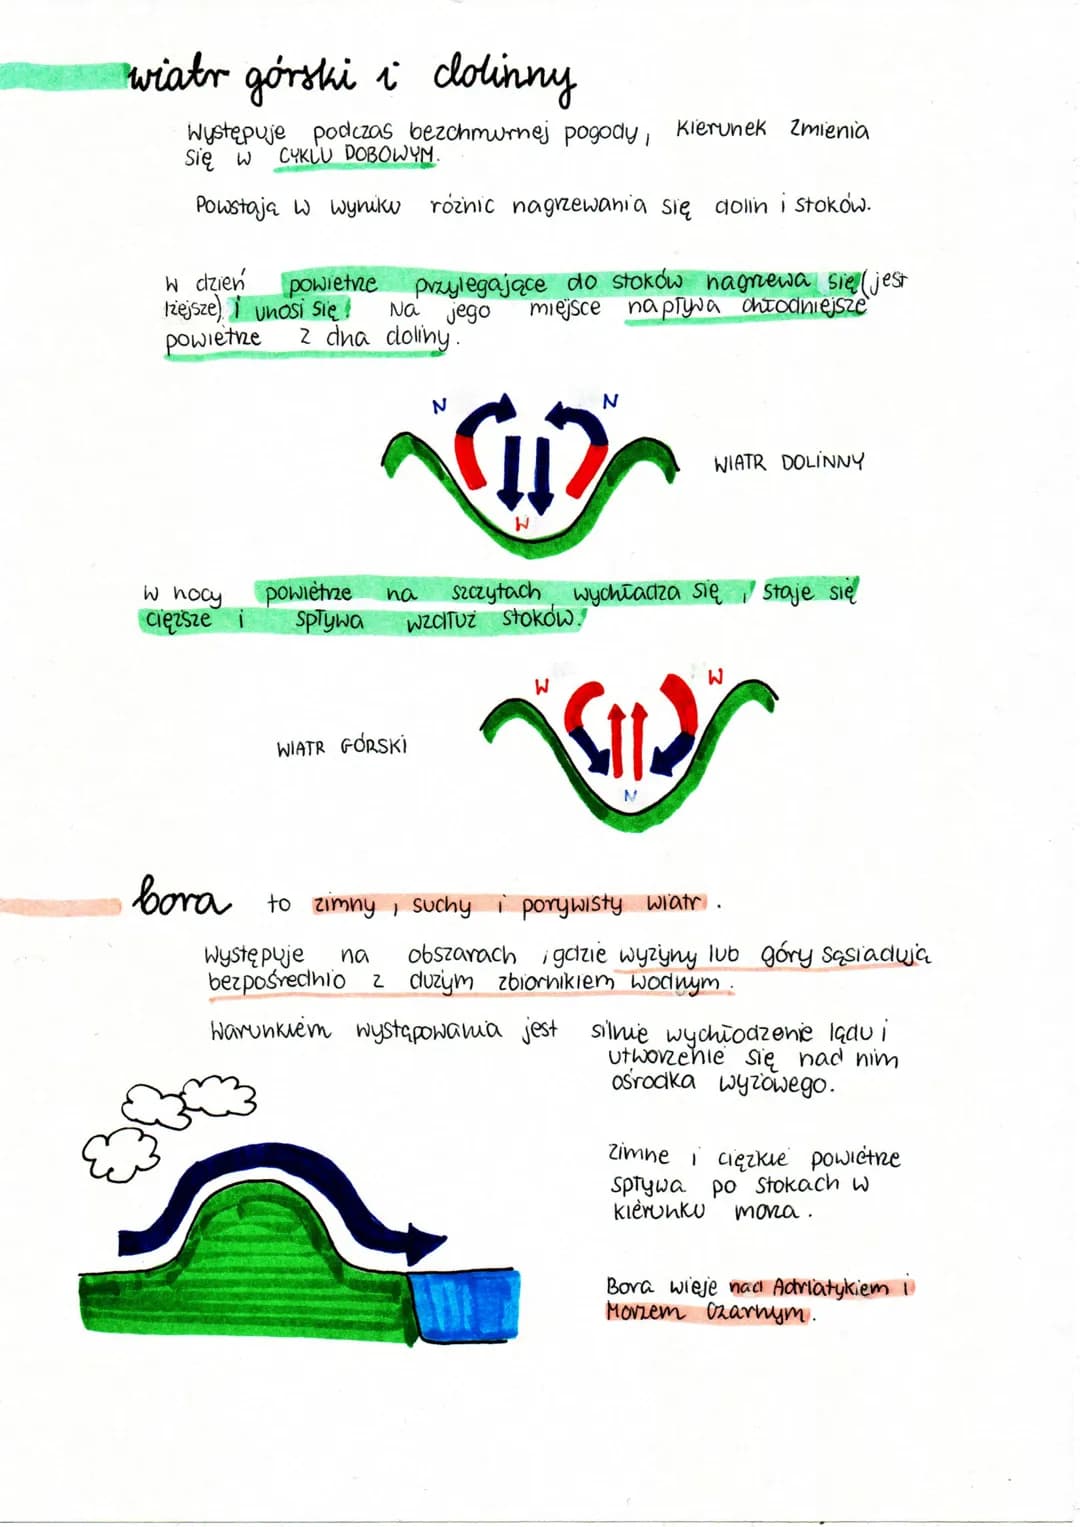 wiatr górski i dolinny
Występuje podczas bezchmurnej pogody, kierunek zmienia
się w CYKLU DOBOWYM.
Powstają w wyniku różnic nagrzewania się dolin i stoków.
W dzień powietrze przylegające do stoków nagrzewa się (jest
lżejsze) i unosi się. Na jego miejsce napływa chłodniejsze
powietrze z dna doliny.
N N
WIATR DOLINNY
W
W nocy powietrze na szczytach wychładza się, staje się
cięższe i spływa wzdłuż stoków.
W W
WIATR GÓRSKI
N
bora to zimny, suchy i porywisty wiatr.
Występuje na obszarach, gdzie wyżyny lub góry sąsiadują
bezpośrednio z dużym zbiornikiem wodnym.
Warunkiem występowania jest silnie wychłodzenie lądu i
utworzenie się nad nim
ośrodka wyżowego.
Zimne i ciężkie powietrze
spływa po stokach w
kierunku morza.
Bora wieje nad Adriatykiem i
Morzem Czarnym.